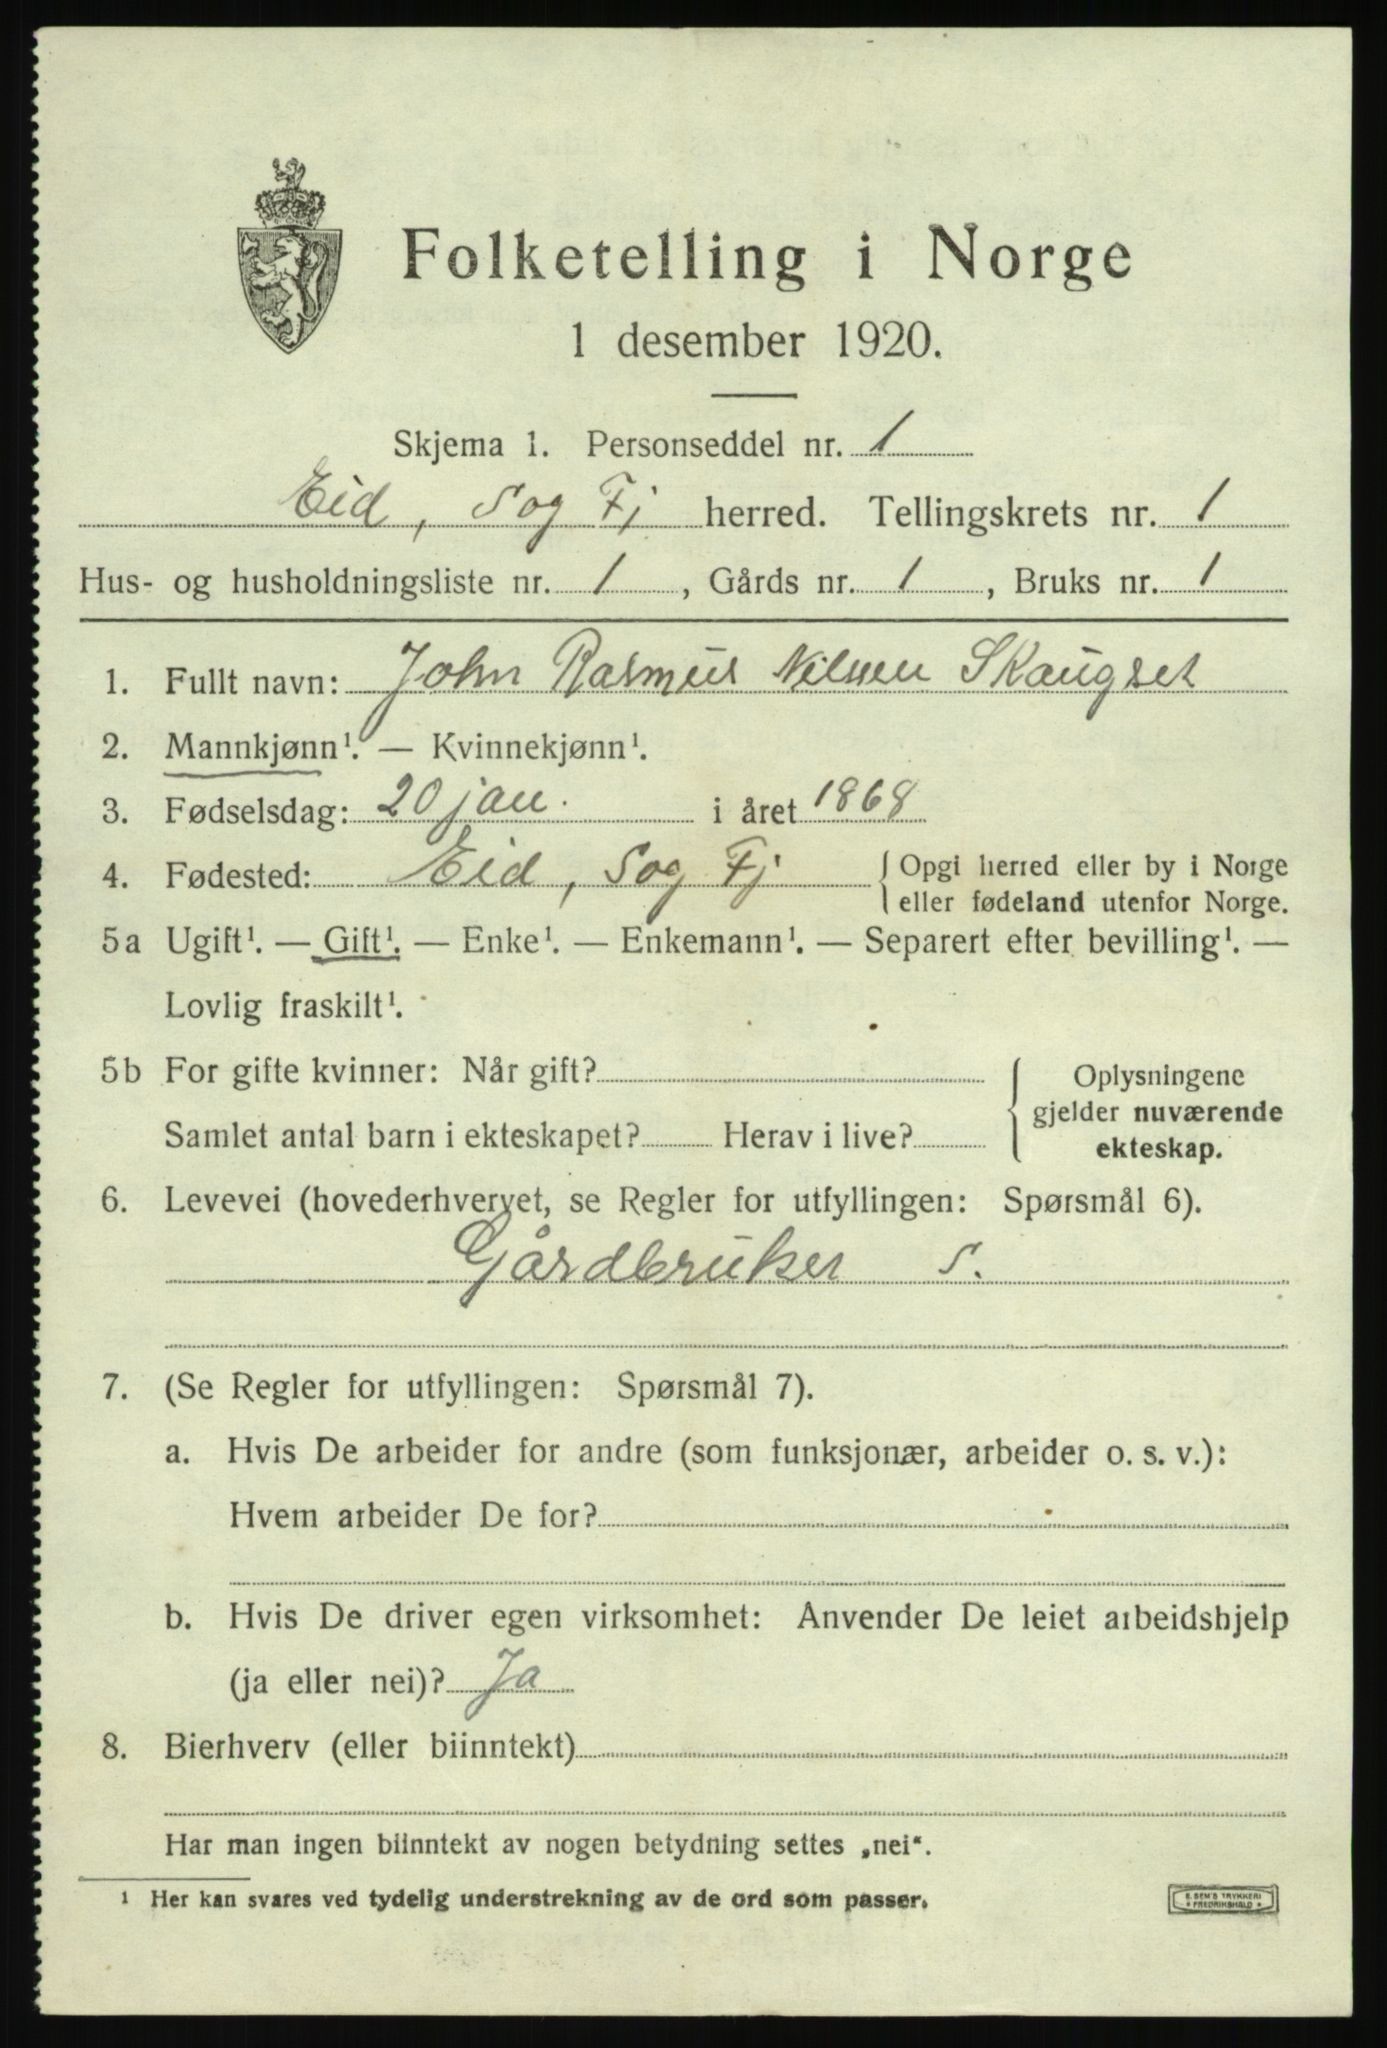 Folketelling i Norge
1 desember 1920.
Skjema 1. Personseddel nr. 1
Eid, S og Fj herred. Tellingskrets nr. 1
Hus- og husholdningsliste nr. 1, Gårds nr. 1, Bruks nr. 1
1. Fullt navn: John Rasmus Nilssen Skaugset
2. Mannkjønn¹. — Kvinnekjønn¹.
3. Fødselsdag: 20 jan. i året 1868
4. Fødested: Eid, S og Fj { Opgi herred eller by i Norge
eller fødeland utenfor Norge.
5a Ugift¹. — Gift¹. — Enke¹. — Enkemann¹. — Separert efter bevilling¹. —
Lovlig fraskilt¹.
5b For gifte kvinner: Når gift? { Oplysningene
gjelder nuværende
Samlet antal barn i ekteskapet? Herav i live?
ekteskap.
6. Levevei (hovederhvervet, se Regler for utfyllingen: Spørsmål 6).
Gårdbruker S.
7. (Se Regler for utfyllingen: Spørsmål 7).
a. Hvis De arbeider for andre (som funksjonær, arbeider o. s. v.):
Hvem arbeider De for?
b. Hvis De driver egen virksomhet: Anvender De leiet arbeidshjelp
(ja eller nei)? Ja
8. Bierhverv (eller biinntekt)
Har man ingen biinntekt av nogen betydning settes „nei“.
¹ Her kan svares ved tydelig understrekning av de ord som passer.
E. SEM'S TRYKKERI
* FREDRIKSHALD *